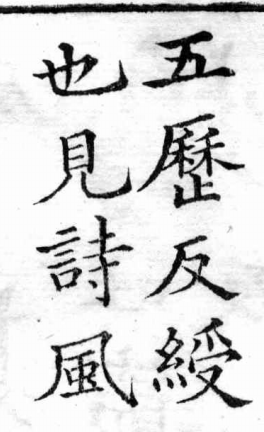 五歷反綬
也見詩風